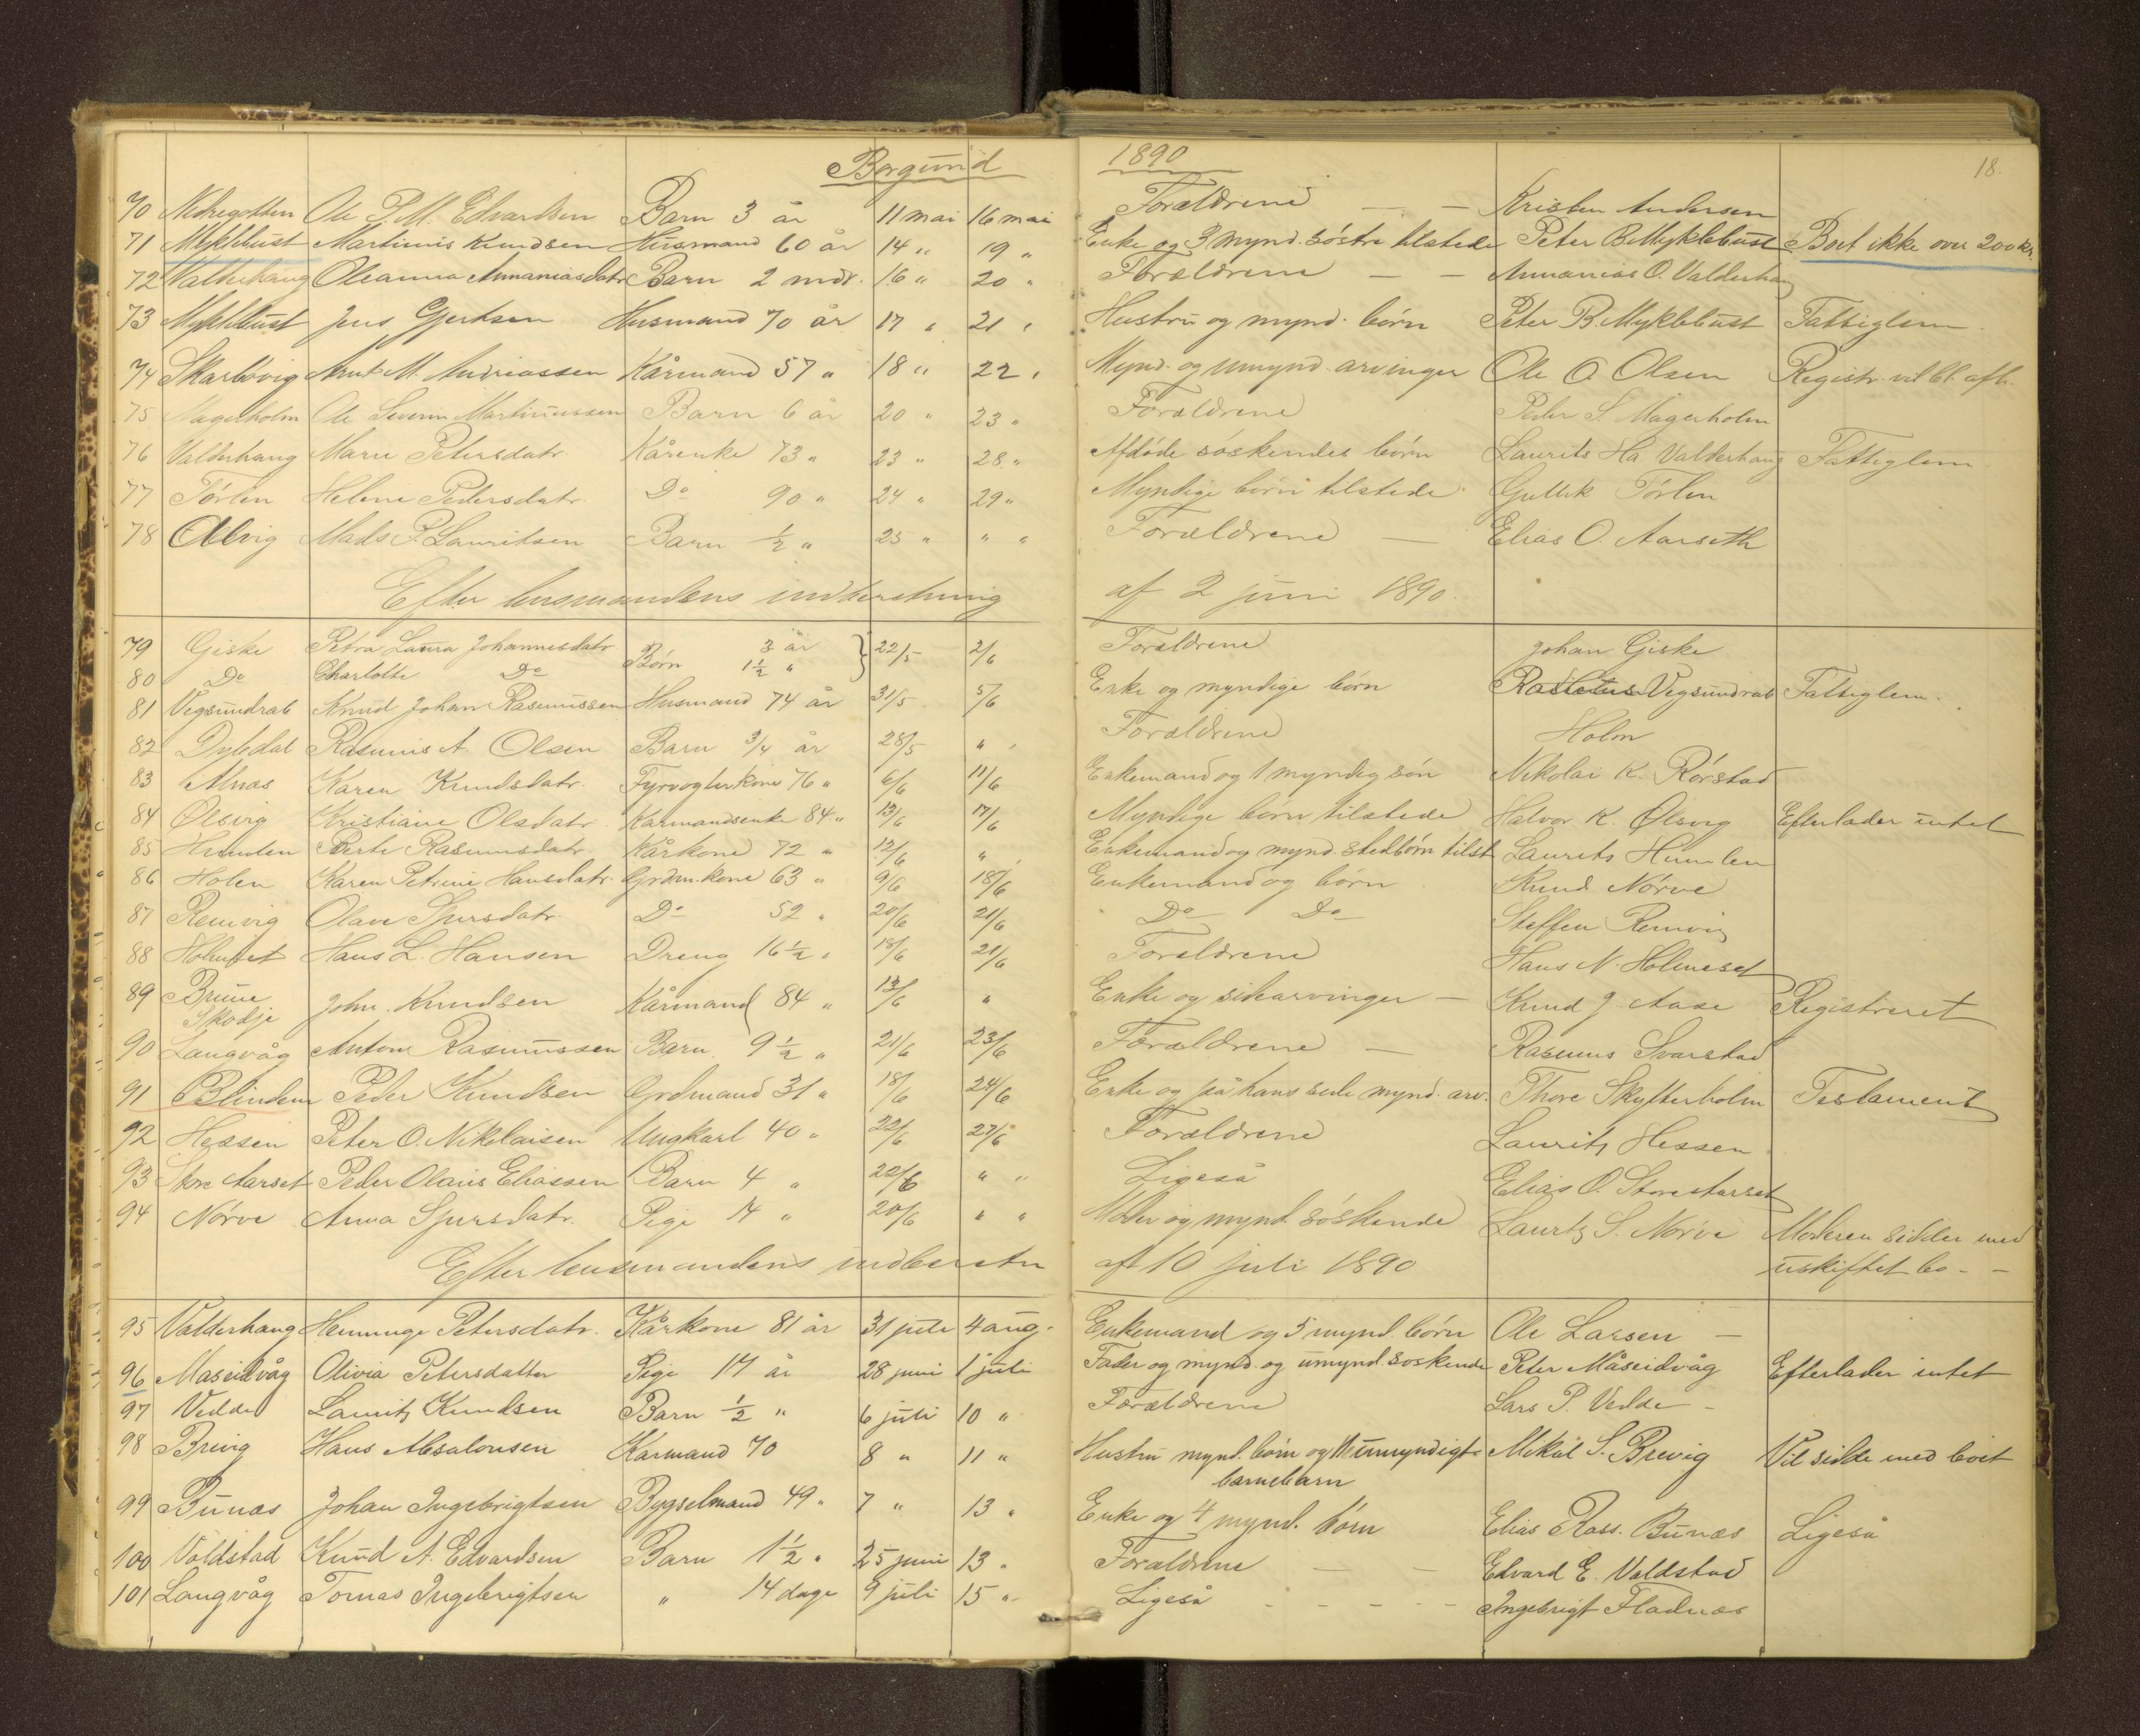 Borgund 1890
18.
70 Nedregotten Ole P. M. Edvardsen Barn 3 år 11 mai 16 mai Forældrene — — Kristen Andersen
71 Myklebust Martinus Knudsen Husmand 60 år 14 " 19 " Enke og 3 mynd. søstre tilstede Peter B. Myklebust Boet ikke over 200 kr.
72 Valderhaug Oleanna Annaniasdatr Barn 2 mdr. 16 " 20 " Forældrene — — Annanias O. Valderhaug
73 Myklebust Jens Gjertsen Husmand 70 år 17 " 21 " Hustru og mynd. børn Peter B. Myklebust Fattiglem
74 Skarbøvig Arnt M. Andreassen Kårmand 57 " 18 " 22 " Mynd. og umynd. arvinger Ole O. Olsen Registr. vil bl. afh.
75 Magerholm Ole Severin Martinussen Barn 6 år 20 " 23 " Forældrene Peder S. Magerholm
76 Valderhaug Marie Petersdatr. Kårenke 73 " 23 " 28 " Afdøde søskendes børn Laurits Ha. Valderhaug Fattiglem
77 Tørlen Helene Pedersdatr. Do 90 " 24 " 29 " Myndige børn tilstede Gullik Tørlen
78 Alvig Mads P. Lauritsen Barn ½ " 25 " " " Forældrene — Elias O. Aarseth
Efter lensmandens indberetning af 2 juni 1890.
79 Giske Petra Laura Johannesdatr Børn 3 år } 22/5 2/6 Forældrene Johan Giske
80 Do Charlotte Do 1½ "
81 Vegsundrab Knud Johan Rasmussen Husmand 74 år 31/5 5/6 Enke og myndige børn Vegsundrab Fattiglem.
82 Dybdal Rasmus A. Olsen Barn ¾ år 28/5 " " Forældrene Holm
83 Alnæs Karen Knudsdatr. Fyrvogterkone 76 " 6/6 11/6 Enkemand og 1 myndig søn Nikolai K. Rørstad
84 Ølsvig Kristiane Olsdatr. Kårmandsenke 84 " 13/6 17/6 Myndige børn tilstede Halvor K. Ølsvig Efterlader intet
85 Humlen Berte Rasmusdatr. Kårkone 72 " 12/6 " " Enkemand og mynd. stedbørn tilst. Laurits Humlen
86 Holen Karen Petrine Hansdatr. Grdm.kone 63 " 9/6 18/6 Enkemand og børn Knud Nørve
87 Remvig Olave Sjursdatr. Do 52 " 20/6 21/6 Do Do Steffen Remvig
88 Holmeset Hans L. Hansen Dreng 16½ " 18/6 21/6 Forældrene Hans N. Holmeset
89 Brune Skodje John. Knudsen Kårmand 84 " 13/6 " Enke og sidearvinger — Knud J. Aase Registreret
90 Langvåg Anton Rasmussen Barn 9½ " 21/6 23/6 Forældrene — Rasmus Svarstad
91 Blindem Peder Knudsen Grdmand 31 " 18/6 24/6 Enke og på hans side mynd. arv. Thore Skytterholm Testament
92 Hessen Peter O. Nikolaisen Ungkarl 40 " 22/6 27/6 Forældrene Laurits Hessen
93 Store Aarset Peder Olaus Eliassen Barn 4 " 22/6 " " Ligeså Elias O. Store Aarset
94 Nørve Anna Sjursdatr. Pige 14 " 20/6 " " Moder og mynd. søskende Laurts S. Nørve Moderen sidder med
uskiftet bo - -
Efter lensmandens indberetn af 10 juli 1890
95 Valderhaug Henninge Petersdatr. Kårkone 81 år 31 juli 4 aug. Enkemand og 5 mynd. børn Ole Larsen —
96 Maseidvåg Olivia Petersdatter Pige 17 år 28 juni 1 juli Fader og mynd. og umynd. søskende Peter Måseidvåg Efterlader intet
97 Vedde Laurits Knudsen Barn ½ " 6 juli 10 " Forældrene Lars P. Vedde -
98 Brevig Hans Absalonsen Kårmand 70 8 " 11 " Hustru mynd. børn og umyndigt Mikal S. Brevig Vil sidde med boet
barnebarn
99 Bunæs Johan Ingebrigtsen Bygselmand 49 " 7 " 13 " Enke og 4 mynd. børn Elias Rass. Bunæs Ligeså
100 Valdstad Knud A. Edvardsen Barn 1½ " 25 juni 13 " Forældrene — — Edvard E. Valdstad
101 Langvåg Tomas Ingebrigtsen " 14 dage 9 juli 15 " Ligeså - - - - Ingebrigt Fladnæs